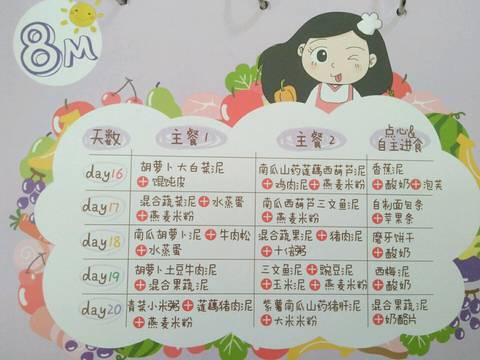 8M
天数 主餐1 主餐2 点心&
自主进食
day16 胡萝卜大白菜泥 南瓜山药莲藕西葫芦泥 香蕉泥
+馄饨皮 +鸡肉泥+燕麦米粉 +酸奶+泡芙
day17 混合蔬菜泥+水蒸蛋 南瓜西葫芦三文鱼泥 自制面包条
+燕麦米粉 +燕麦米粉 +苹果条
day18 南瓜胡萝卜泥+牛肉松 混合蔬果泥+猪肉泥 磨牙饼干
+水蒸蛋 +十倍粥 +酸奶
day19 胡萝卜土豆牛肉泥 三文鱼泥+豌豆泥 西梅泥
+混合果蔬泥 +玉米泥+燕麦米粉 +酸奶
day20 青菜小米粥+莲藕猪肉泥 紫薯南瓜山药猪肝泥 混合果蔬泥
+燕麦米粉 +大米米粉 +奶酪片